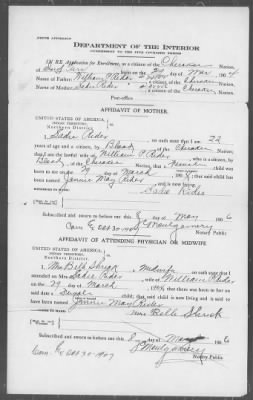 DEPARTMENT OF THE INTERIOR
COMMISSION TO THE FIVE CIVILIZED TRIBES
IN RE Application for Enrollment, as a citizen of the Cherokee Nation,
day of Mar 1904
Name of Father: William P Rider a citizen of the Cherokee Nation.
Name of Mother: Sadie Rider a citizen of the Cherokee Nation.
Post-office
AFFIDAVIT OF MOTHER
UNITED STATES OF AMERICA,
INDIAN TERRITORY,
Northern District
I, Sadie Rider on oath state that I am 22
years of age and a citizen, by Blood, of the Cherokee Nation,
that I am the lawful wife of William P Rider who is a citizen, by
Blood of the Cherokee Nation, that a Female child was
born to me on the 29 day of March that said child has
been named Jennie May Rider and is now living.
Sadie Rider
Subscribed and sworn to before me this 8 day of May 1906
Montgomery
Com Ex Oct 30-1907 Notary Public
AFFIDAVIT OF ATTENDING PHYSICIAN OR MIDWIFE
UNITED STATES OF AMERICA,
INDIAN TERRITORY,
Northern District
I, Mrs Belle a Midwife on oath state that I
attended on Mrs Sadie Rider wife of William P Rider
on the 29 day of March that there was born to her on
said date a Female child; that said child is now living and is said to
have been named Jennie May Rider
Mrs Belle
Subscribed and sworn to before me this 8 day of May 1906
Montgomery
Com Ex Oct 30-1907
Notary Public